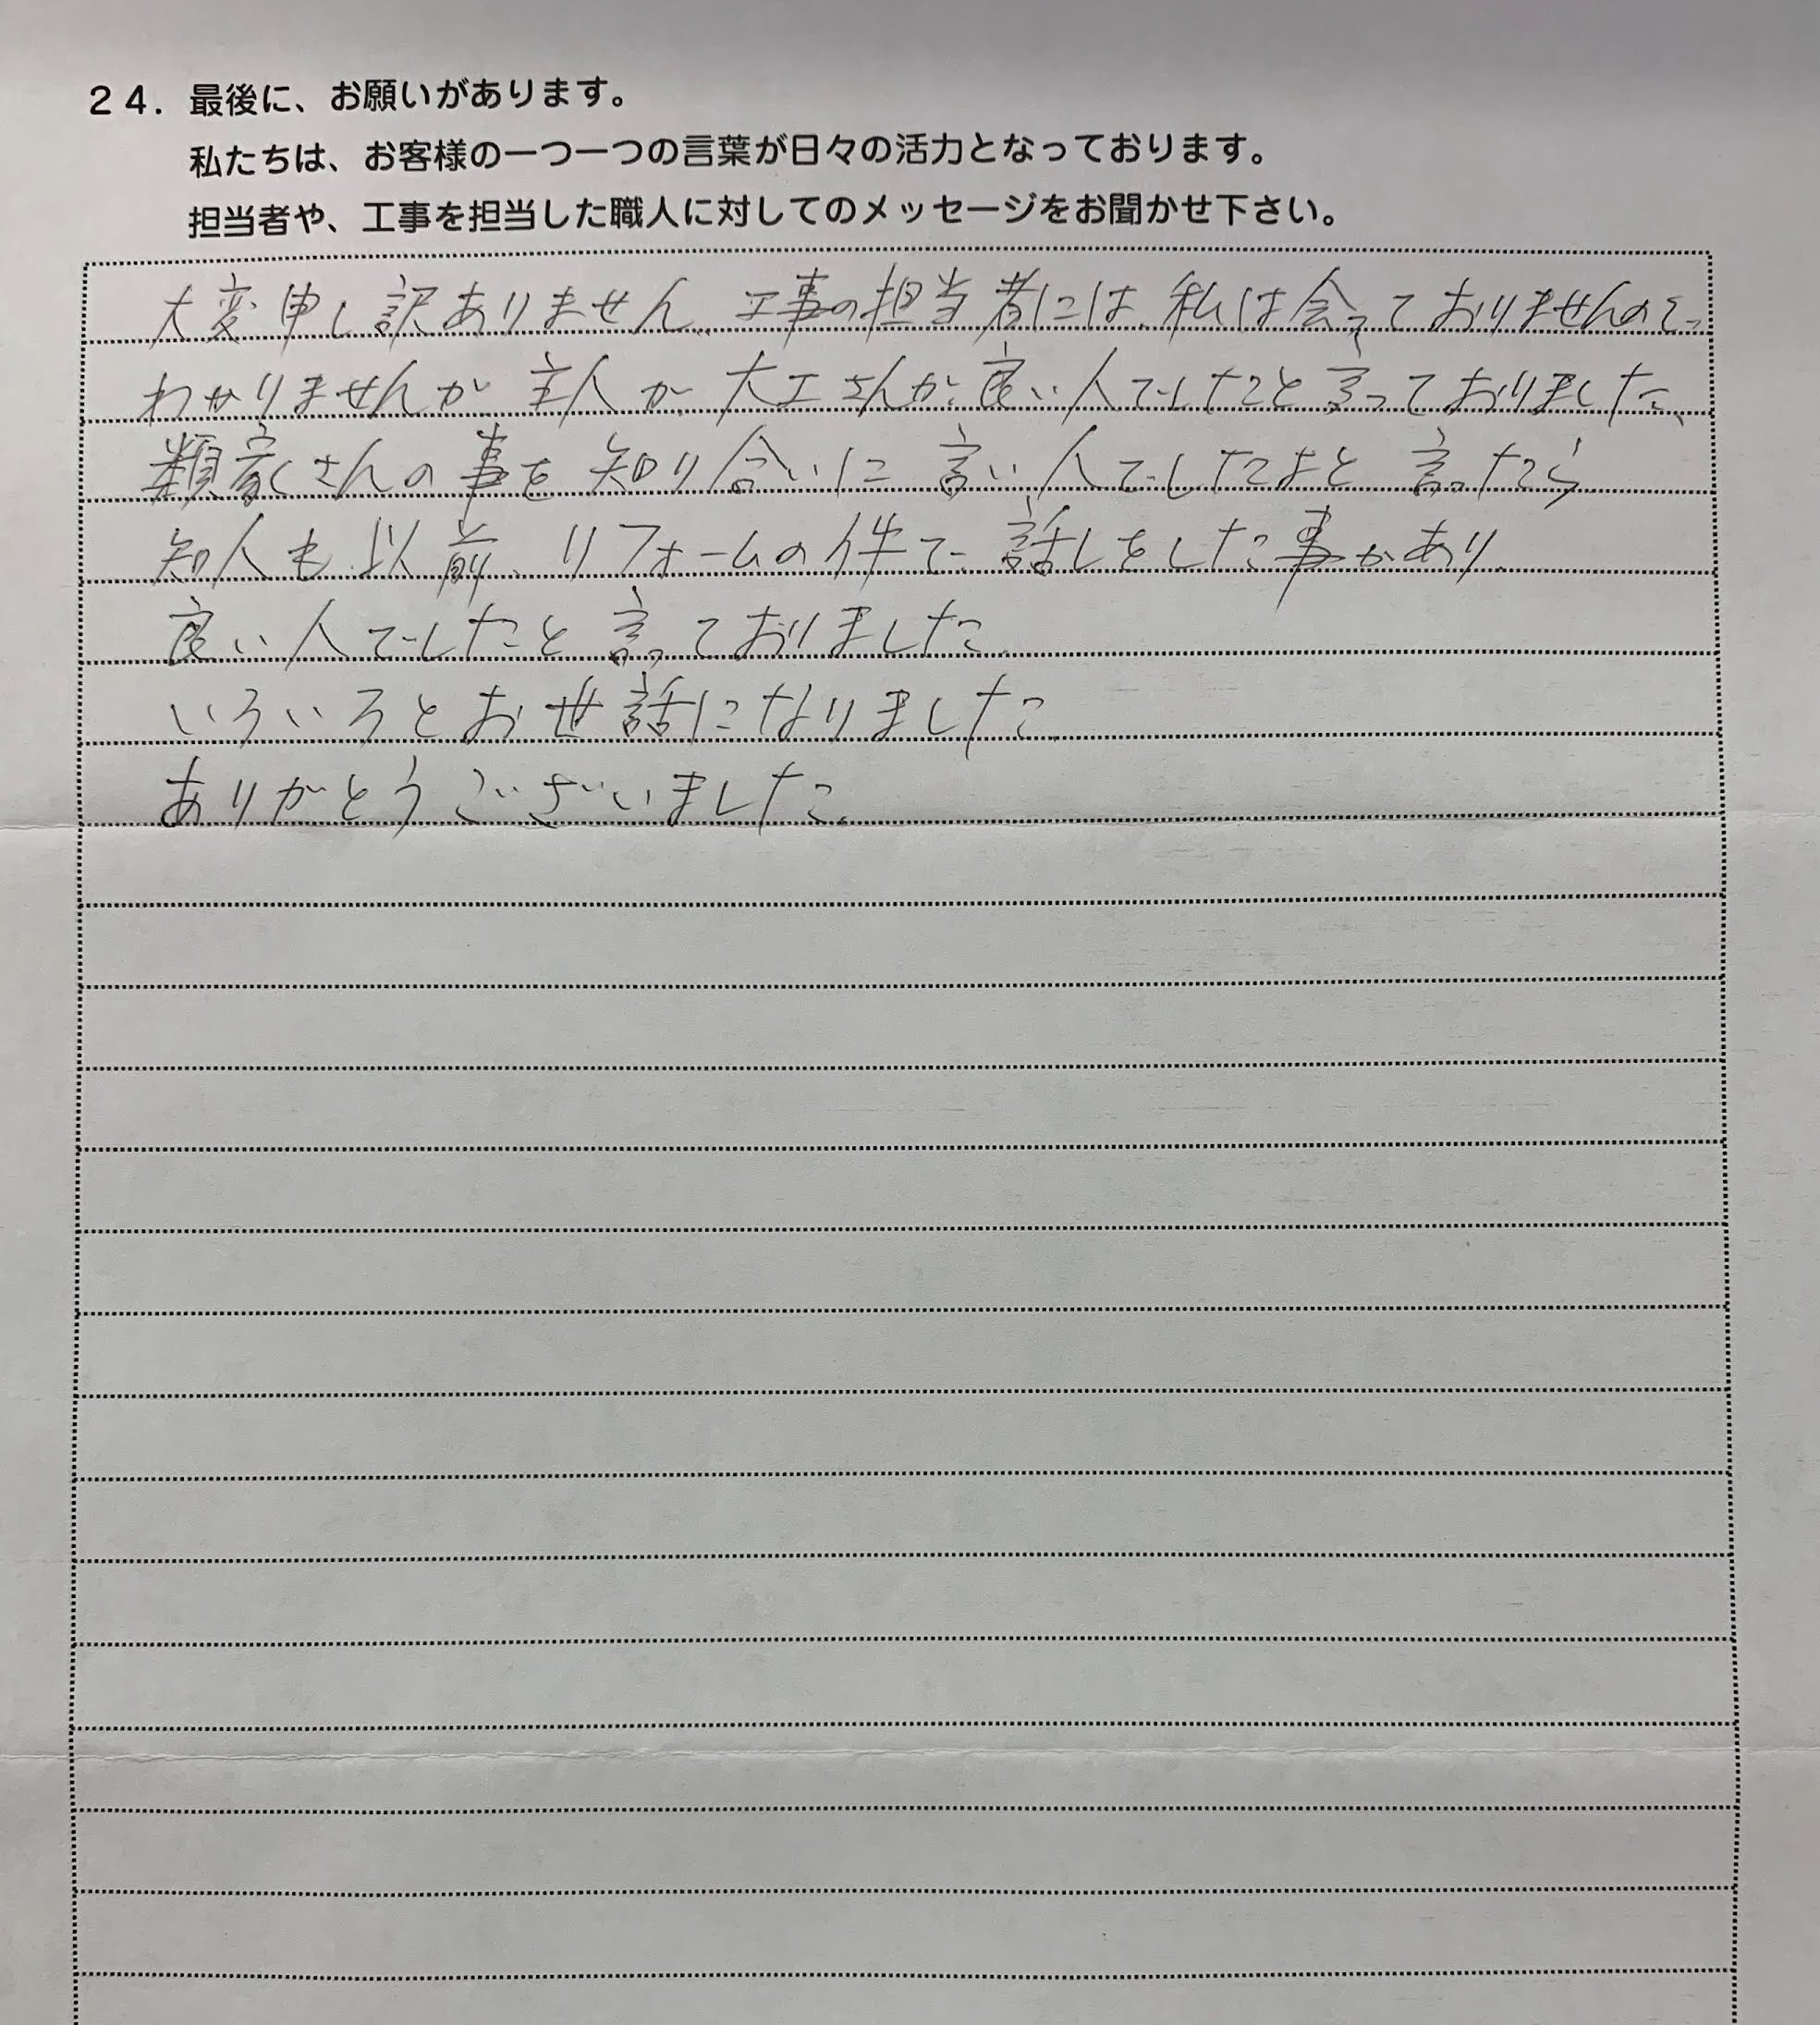 24. 最後に、お願いがあります。
私たちは、お客様の一つ一つの言葉が日々の活力となっております。
担当者や、工事を担当した職人に対してのメッセージをお聞かせ下さい。
大変申し訳ありません、工事の担当者には、私は会っておりませんので
わかりませんが 主人が 大工さんが良い人でしたと言っておりました、
類家さんの事を知り合いに言い人でしたよと言ったら
知人も以前、リフォームの件で話しをした事があり
良い人でしたと言っておりました
いろいろとお世話になりました
ありがとうございました